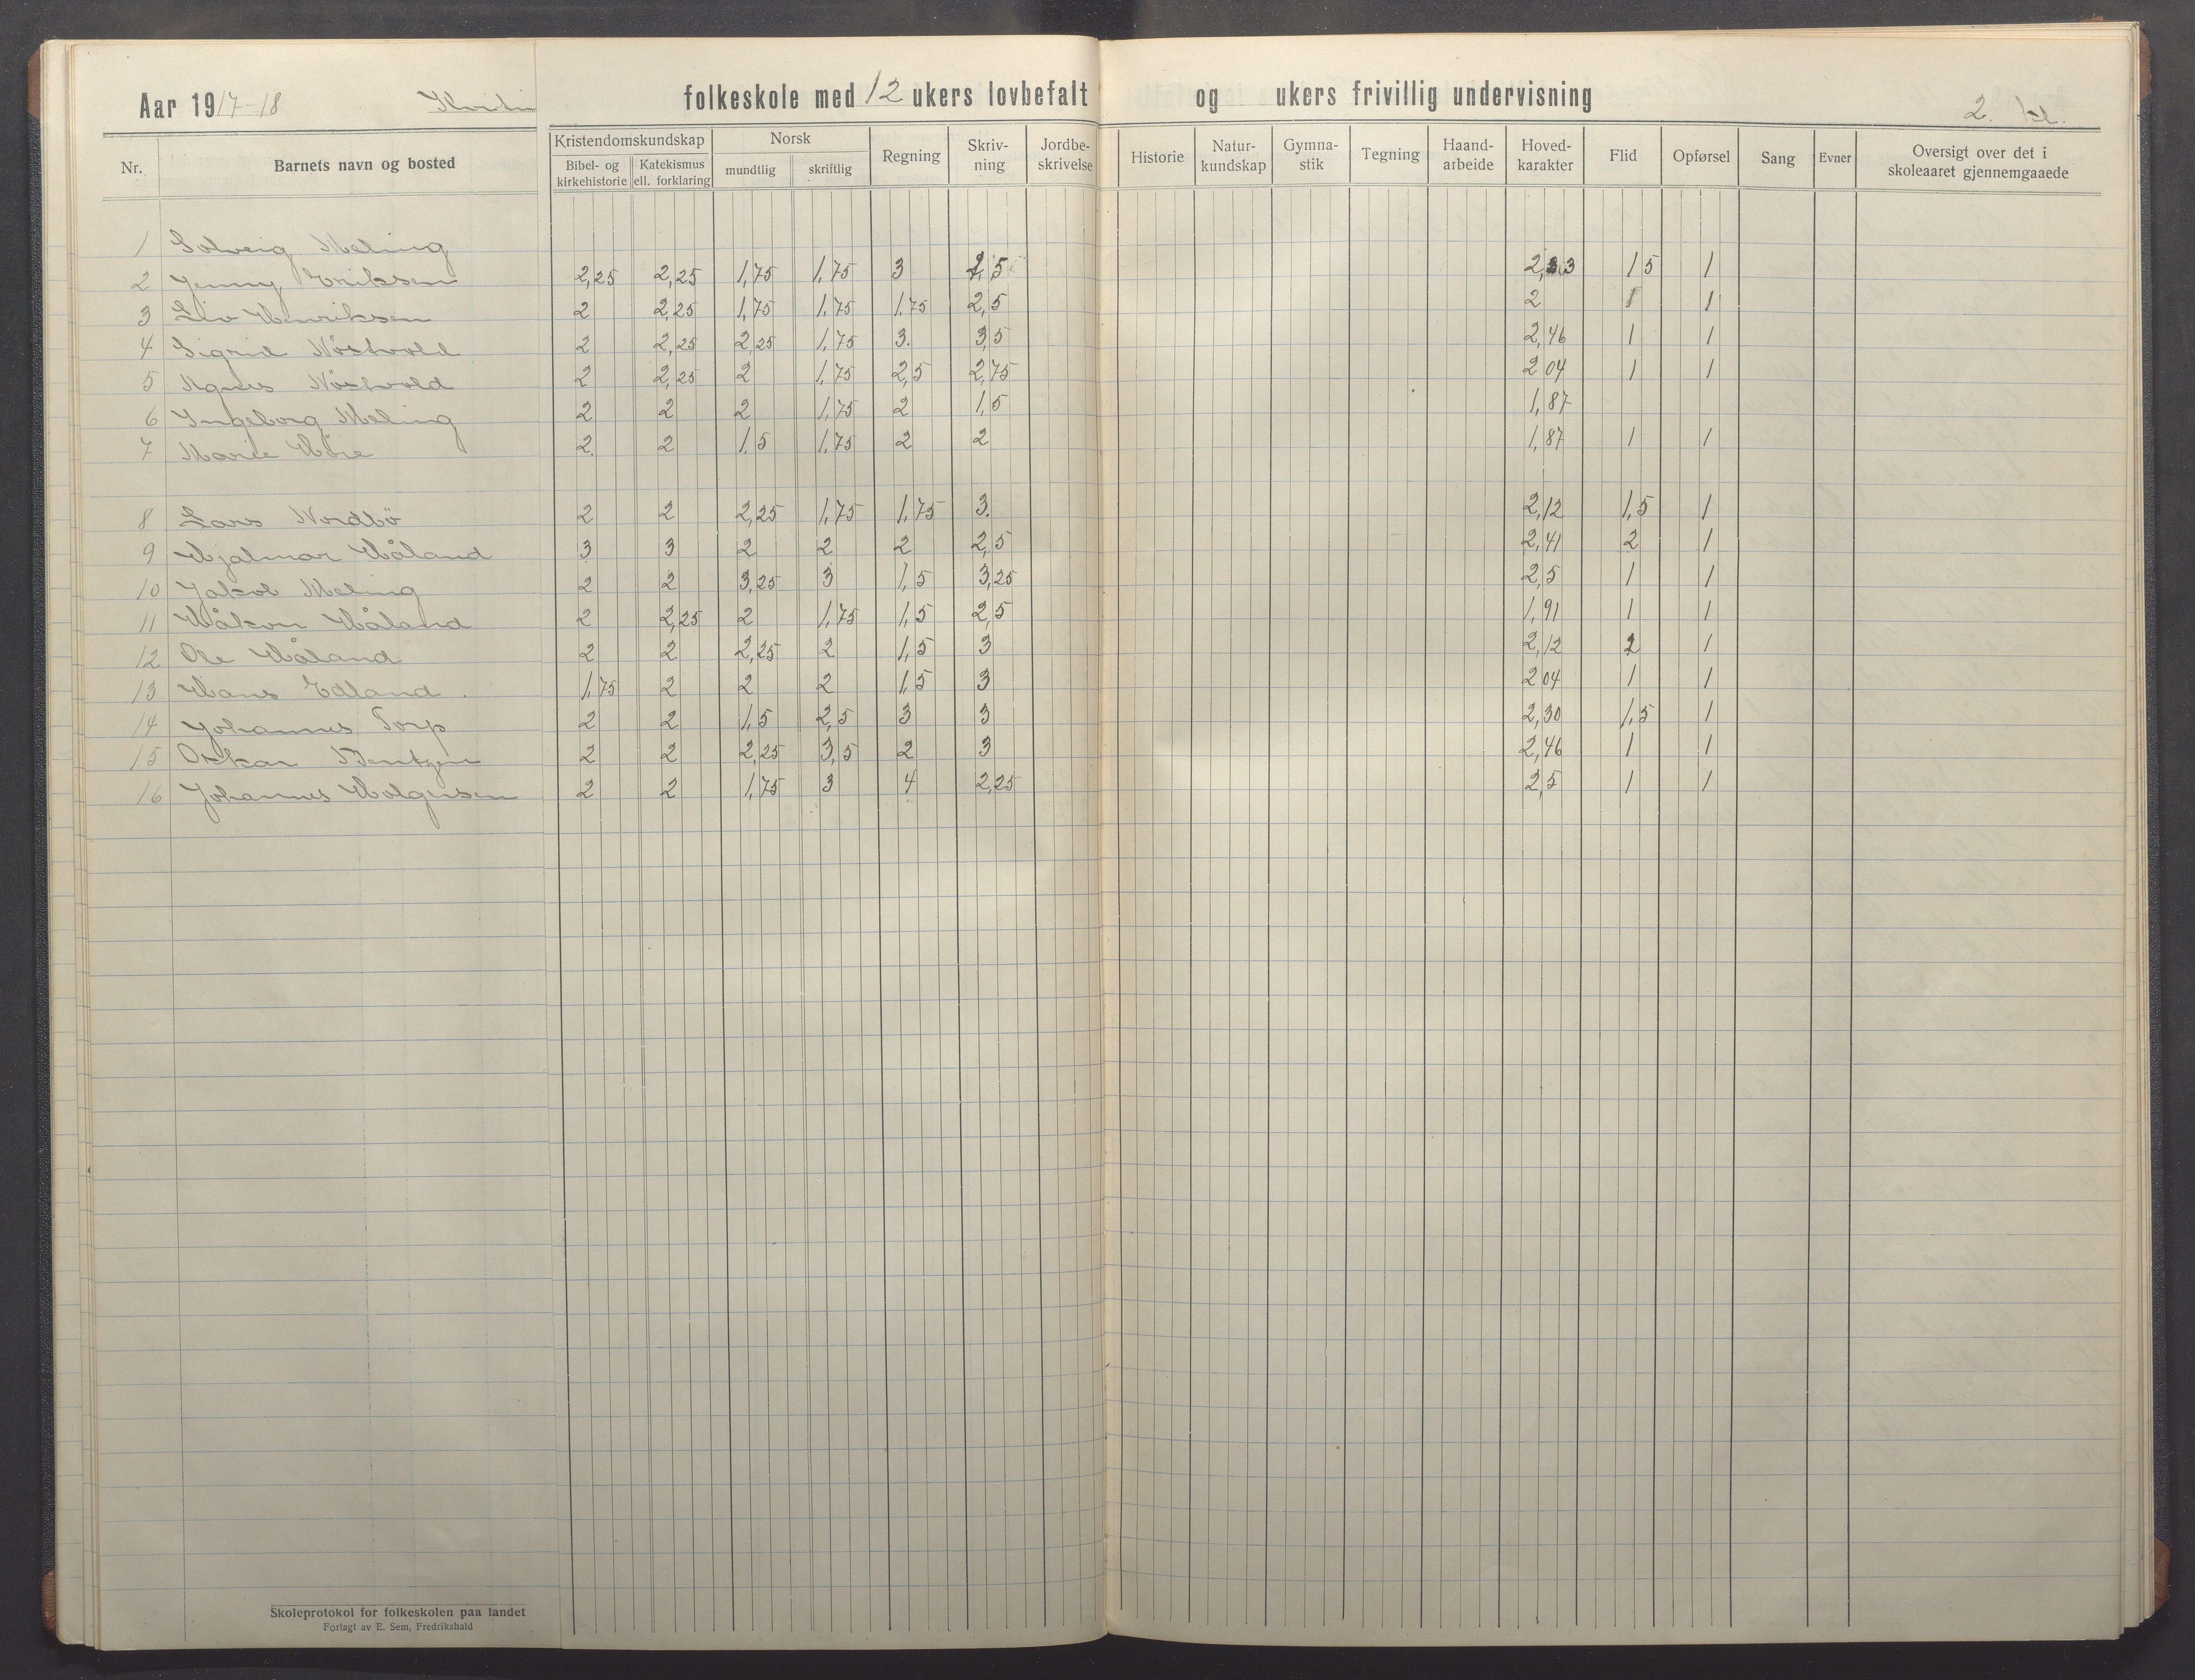 Aar 1917-18 folkeskole med 12 ukers lovbefalt og ukers frivillig undervisning 2. kl.
Nr. Barnets navn og bosted Kristendomskundskap Bibel- og kirkehistorie Katekismus ell. forklaring Norsk mundtlig skriftlig Regning Skriv-ning Jordbe-skrivelse Historie Natur-kundskap Gymna-stik Tegning Haand-arbeide Hoved-karakter Flid Opførsel Sang Evner Oversigt over det i skoleaaret gjennemgaaede
1 Solveig Meling
2 Jenny Eriksen 2,25 2,25 1,75 1,75 3 2,5 2,33 1 5 1
3 Liv Henriksen 2 2,25 1,75 1,75 1,75 2,5 2 1 1
4 Sigrid Nöstvold 2 2,25 2,25 1,75 3. 3,5 2,46 1 1
5 Agnes Nöstvold 2 2,25 2 1,75 2,5 2,75 2 04 1 1
6 Ingeborg Meling 2 2 2 1,75 2 1,5 1,87
7 Marie Höie 2. 2 1,5 1,75 2 2 1,87 1 1
8 Lars Nordbö 2 2 2,25 1,75 1,75 3. 2,12 1,5 1
9 Hjalmar Håland 3 3 2 2 2 2,5 2,41 2 1
10 Jakob Meling 2 2 3,25 3 1,5 3,25 2,5 1 1
11 Håkon Håland 2 2,25 2 1,75 1,5 2,5 1,91 1 1
12 Ole Håland 2 2 2,25 2 1,5 3 2,12 2 1
13 Hans Edland. 1,75 2 2 2 1,5 3 2 04 1 1
14 Johannes Torp 2 2 1,5 2,5 3 3 2,30 1,5 1
15 Oskar Bentzen 2 2 2,25 3,5 2 3 2,46 1 1
16 Johannes Holgersen 2 2 1,75 3 4 2,25 2,5 1 1
Skoleprotokol for folkeskolen paa landet
Forlagt av E. Sem, Fredrikshald